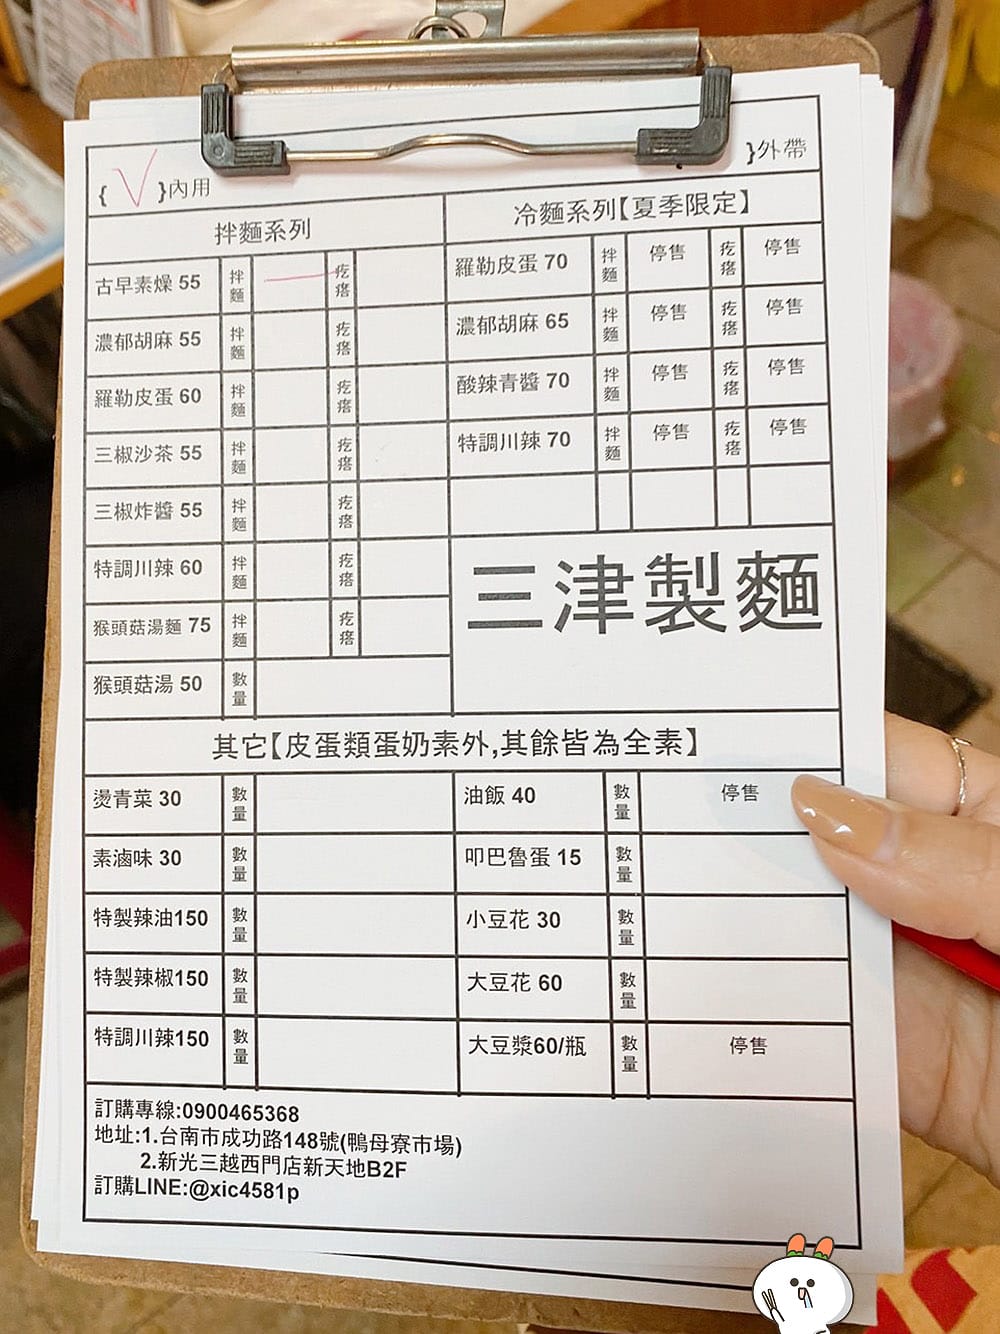 { √ }內用 }外帶
拌麵系列
古早素燥 55 拌麵 疙瘩
濃郁胡麻 55 拌麵 疙瘩
羅勒皮蛋 60 拌麵 疙瘩
三椒沙茶 55 拌麵 疙瘩
三椒炸醬 55 拌麵 疙瘩
特調川辣 60 拌麵 疙瘩
猴頭菇湯麵 75 拌麵 疙瘩
猴頭菇湯 50 數量
冷麵系列【夏季限定】
羅勒皮蛋 70 拌麵 停售 疙瘩 停售
濃郁胡麻 65 拌麵 停售 疙瘩 停售
酸辣青醬 70 拌麵 停售 疙瘩 停售
特調川辣 70 拌麵 停售 疙瘩 停售
三津製麵
其它【皮蛋類蛋奶素外,其餘皆為全素】
燙青菜 30 數量 油飯 40 數量 停售
素滷味 30 數量 叩巴魯蛋 15 數量
特製辣油150 數量 小豆花 30 數量
特製辣椒150 數量 大豆花 60 數量
特調川辣150 數量 大豆漿60/瓶 數量 停售
訂購專線:0900465368
地址:1.台南市成功路148號(鴨母寮市場)
2.新光三越西門店新天地B2F
訂購LINE:@xic4581p